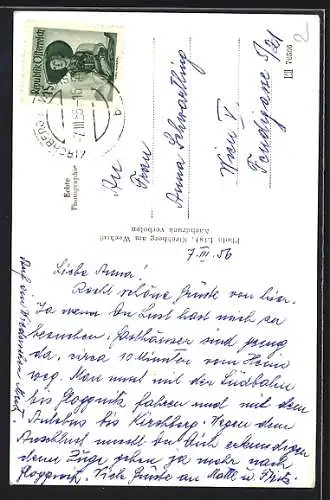 Republik Österreich
KIRCHBERG
-7.III.56-
An
Frau
Anna Schwartling
Wien V.
5/21
III 76566
2
Echte
Photographie
Photo List, Kirchberg am Wechsel
Nachdruck verboten
7. III. 56
Liebe Anna.
Recht schöne Grüße von hier.
Ja wenn Du Lust hast mich zu
besuchen; Gasthäuser sind genug
da, circa 10 Minuten vom Heim
weg. Man muß mit der Südbahn
bis Gloggnitz fahren und mit dem
Autobus bis Kirchberg. Wegen dem
Anschluß mußt Du Dich erkundigen
denn Züge gehen ja mehr nach
Gloggnitz. Viele Grüße an u. Fritz.
Auf ein Wiedersehen